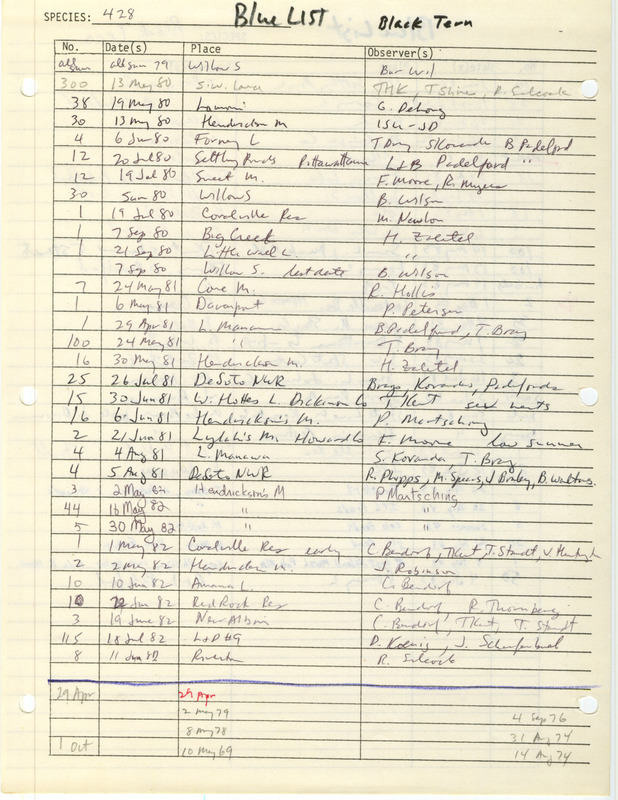 SPECIES: 428 Blue LIST Black Tern
No. Date(s) Place Observer(s)
all sum all sum 79 Willow S Bar Wil
300 13 May 80 S.W. Iowa THK, T Shires, R. Silcock
38 19 May 80 Lamoni G. DeLong
30 13 May 80 Hendrickson M ISU-JD
4 6 Jun 80 Forney L T Bray S Kovanda B Padelford
12 20 Jul 80 Settling Ponds Pottawattamie L & B Padelford "
12 19 Jul 80 Sweet M. F. Moore, R. Myers
30 Sum 80 Willow S B. Wilson
1 19 Jul 80 Coralville Res M. Newlon
1 7 Sep 80 Big Creek H. Zaletel
1 21 Sep 80 Little Wall L. "
7 Sep 80 Willow S. last date B. Wilson
7 24 May 81 Cone M. R. Hollis
1 6 May 81 Davenport P. Petersen
1 29 Apr 81 L. Manawa B. Padelford, T. Bray
100 24 May 81 " T. Bray
16 30 May 81 Hendrickson M. H. Zaletel
25 26 Jul 81 DeSoto NWR Brays, Kovandas, Padelfords
15 30 Jun 81 W. Hottes L. Dickinson Co, TKent sex nests
16 6 Jun 81 Hendrickson's M. P. Martsching
2 21 Jun 81 M. Howard Co F. Moore low summer
4 4 Aug 81 L. Manawa S. Kovanda T. Bray
4 5 Aug 81 DeSoto NWR R. Phipps, M. Spears, J Braley, B. Watkins.
3 2 May 82 Hendrickson's M P Martsching
44 16 May 82 " " "
5 30 May 82 " " "
1 1 May 82 Coralville Res early C. Bendorf, TKent, T. Staudt,
2 2 May 82 Hendrickson M. J. Robinson
10 10 Jun 82 Amana L. C. Bendorf
10 Jun 82 Red Rock Res C. Bendorf, R. Thornburg
3 19 June 82 New Albin C. Bendorf, TKent, T. Staudt
115 18 Jul 82 L+D #9 D. Koenig, J. Schaufenbuel
8 11 Jun 82 Riverton R. Silcock
29 Apr 29 Apr
2 May 79 4 Sep 76
8 May 78 31 Aug 74
1 Oct 10 May 69 14 Aug 74